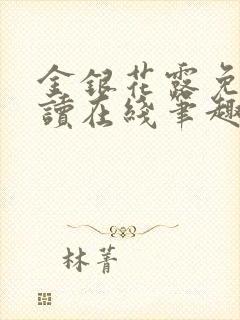 金銀花露免
讀在綫筆趣
林菁